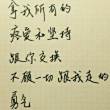 拿我所有的
病爱和坚持
跟你交换
不顾一切跟我走的
勇气